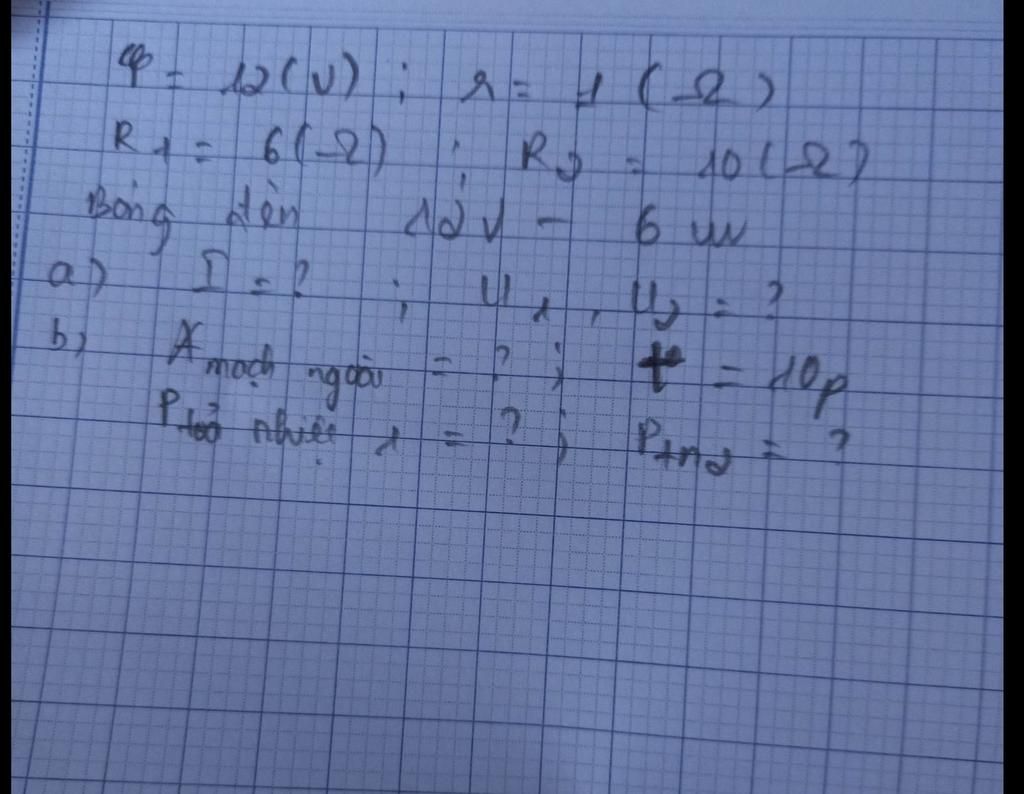 φ = 12 (V) ; r = 1 (Ω)
R1 = 6 (Ω) ; R2 = 10 (Ω)
Bóng đèn 12V - 6 W
a) I = ? ; U1, U2 = ?
b) A mạch ngoài = ? ; t = 10p
P toả nhiệt 1 = ? ; Ptn2 = ?